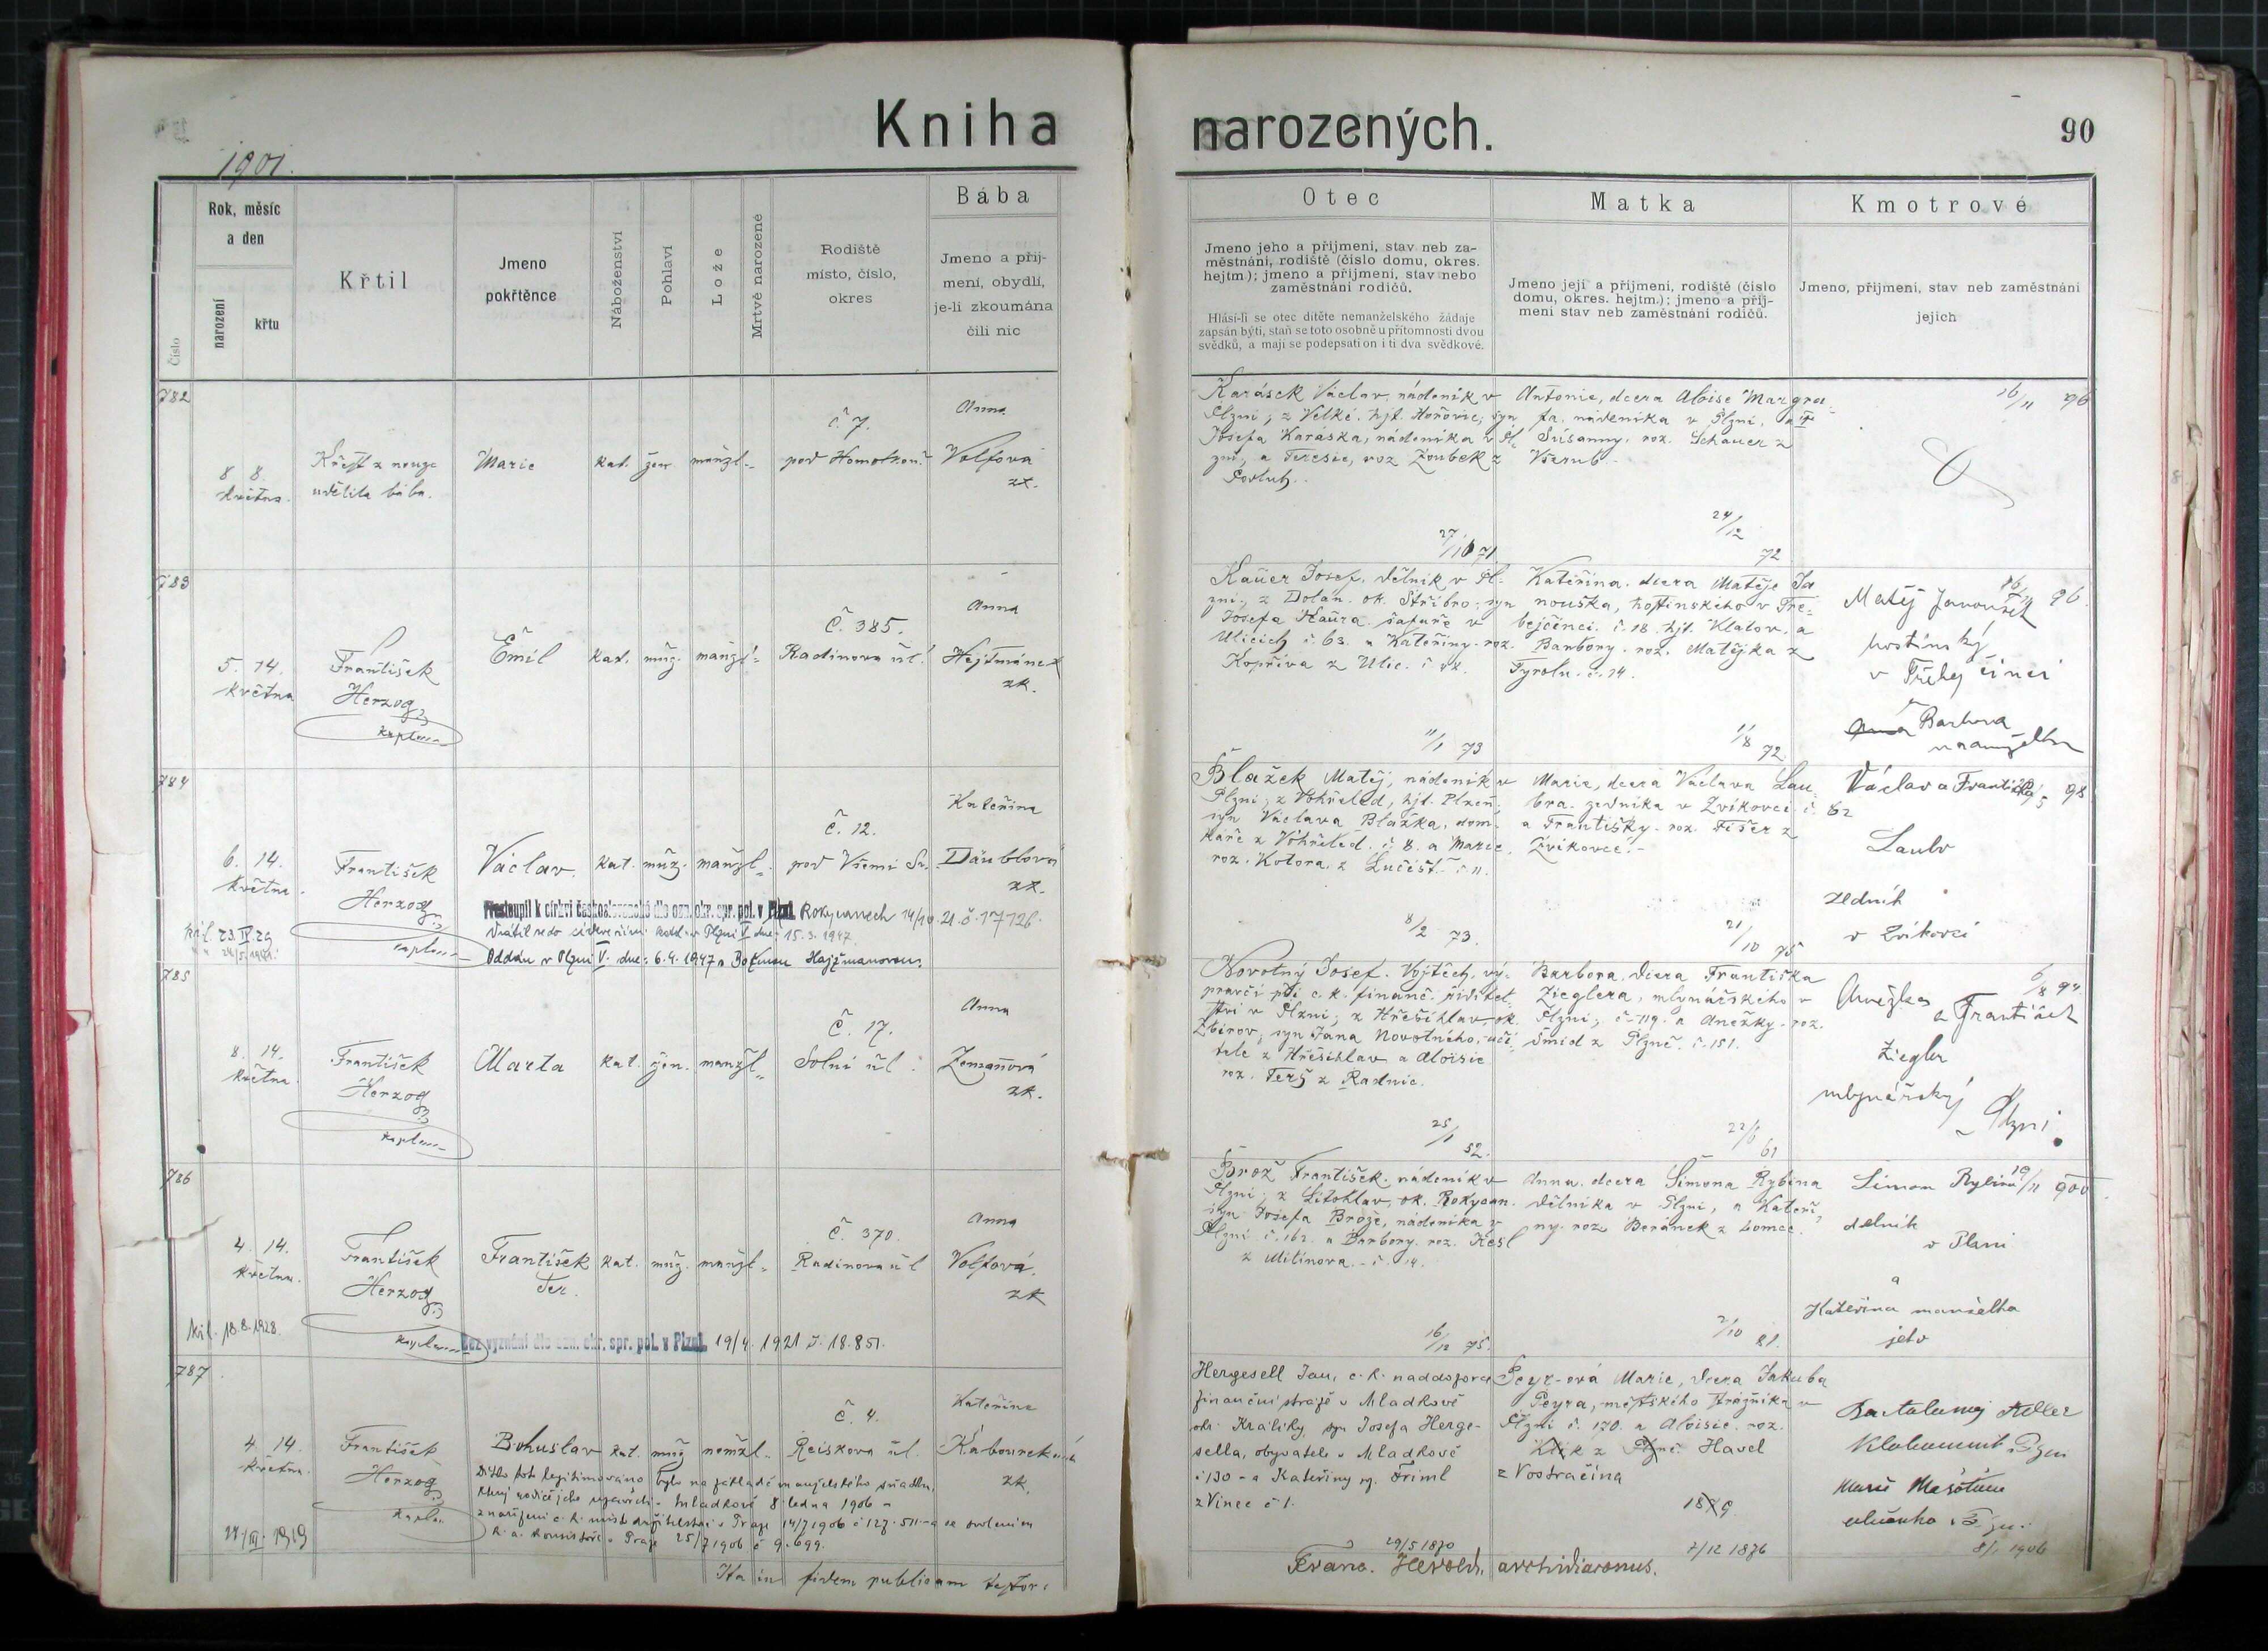 Kniha
narozených.
90
1901.
Číslo
Rok, měsíc
a den
narození
křtu
Křtil
Jmeno
pokřtěnce
Náboženství
Pohlaví
Lože
Mrtvě narozené
Rodiště
místo, číslo,
okres
Bába
Jmeno a příj-
mení, obydlí,
je-li zkoumána
čili nic
Otec
Jmeno jeho a příjmeni, stav neb za-
městnáni, rodiště (číslo domu, okres.
hejtm); jmeno a přijmeni, stav nebo
zaměstnáni rodičů.
Hlásí-li se otec dítěte nemanželského žádaje
zapsán býti, staň se toto osobně u přítomnosti dvou
svědků, a mají se podepsati on i ti dva svědkové.
Matka
Jmeno její a přijmeni, rodiště (číslo
domu, okres. hejtm.); jmeno a příj-
meni stav neb zaměstnáni rodičů.
Kmotrové
Jmeno, přijmeni, stav neb zaměstnáni
jejich
782
8 8.
května.
Křest z nouze
udělila bába.
Marie
kat. žen. manžl.
č. 7.
pod Homolkou
Anna
Volfová
zk.
Karásek Václav, nádeník v
Plzni; z Velké. hjt. Hořovic; syn
Josefa Karáska, nádeníka v Pl-
zni, a Teresie, roz. Zoubek z
27/10 71
Antonie, dcera Aloise Margra-
fa, nádeníka v Plzni, a
Susanny, roz. Schauer z
Všerub.
24/12
72
16/11 96
783
5. 14.
května
František
Herzog
kaplan
Emil
kat. muž. manžl.
Č. 385.
Radinova ul.
Anna
Hejtmánek
zk.
Kauer Josef, dělník v Pl-
zni; z Dolan. ok. Stříbro; syn
Josefa Kaura, šafáře v
Ulicích č. 63. a Kateřiny roz.
Kopřiva z Ulic.
11/1 73
Kateřina, dcera Matěje Ja
nouška, hostinského v Tře-
bejčinci. č. 18. hjt. Klatov, a
Barbory. roz. Matějka z
Tyrolu. č. 14.
1/8 72.
Matěj Janoušek
hostinský
v Třebejčinci
a Barbora
manželka
96.
784
6. 14.
května.
František
Herzog
kaplan
Václav.
kat. muž. manžl.
č. 12.
pod Všemi Sv.
Kateřina
Däublová
zk.
Přestoupil k církvi československé dle ozn. okr. spr. pol. v Plzni Rokycanech 14/10.21.č.17726.
Vrátil se do církve řím. katol. v Plzni V dne: 15.3.1947.
Oddán v Plzni V. dne: 6.4.1947 s Boženou Hajžmanovou.
kř.l. 23.IV.29
Blažek Matěj, nádeník v
Plzni; z Vohřeled, hjt. Plzeň;
syn Václava Blažka, dom-
káře z Vohřeled. č. 8. a Marie.
roz. Kotora. z Lučišť. č. 11.
8/2 73.
Marie, dcera Václava Lau-
bra. zedníka v Zvíkovci č. 62
a Františky. roz. Fišer z
Zvíkovce.
21/10 75
Václav a Františka
Laubr
zedník
v Zvíkovci
98
785
8. 14.
května.
František
Herzog
kaplan
Marta
kat. žen. manžl.
Č. 17.
Solní ul.
Anna
Zemanová
zk.
Novotný Josef. Vojtěch, vý-
pravčí při c. k. finanč. ředitel-
ství v Plzni; z Hřešihlav, ok.
Zbirov; syn Jana Novotného, uči-
tele z Hřešihlav a Aloisie
roz. Terš z Radnic.
25/1
52.
Barbora. dcera Františka
Zieglera, mlynářského v
Plzni; č. 119. a Anežky. roz.
Šmíd z Plzně. č. 151.
22/6
61
Anežka
a František
Ziegler
mlynářský
Plzni
6/8 94.
786
4. 14.
května.
František
Herzog
kaplan
František
Ser.
kat. muž. manžl.
Č. 370.
Radinova ul
Anna
Volfová.
zk
kř.l. 18.8.1928.
Bez vyznání dle ozn. okr. spr. pol. v Plzni. 19/4. 1921 č. 18.851.
Brož František, nádeník v
Plzni; z Litohlav, ok. Rokycan.
syn Josefa Brože, nádeníka v
Plzni č. 162. a Barbory. roz. Kesl
z Mitínova. č. 14.
16/12 75.
Anna. dcera Šimona Rybína
dělníka v Plzni, a Kateři-
ny. roz. Beránek z Lomce.
2/10 81.
Šimon Rybín
dělník
v Plzni
a
Kateřina manželka
jeho
10/11 900.
787
4 14.
května.
František
Herzog
kaplan
Bohuslav
kat. muž. nemžl.
Č. 4.
Reiskova ul.
Kateřina
Kabourková
zk.
Dítko toto legitimováno bylo na základě manželského sňatku,
který rodiče jeho uzavřeli v Mladkově 8 ledna 1906 -
z nařízení c. k. místodržitelství v Praze 14/7 1906 č 127.511 a se svolením
k. a. konsistoře v Praze 25/7 1906 č 9.699.
27/III. 1919
Hergesell Jan, c. k. naddozorce
finanční stráže v Mladkově
okr. Králíky, syn Josefa Herge-
sella, obyvatele v Mladkově
č 130 - a Kateřiny roz. Friml
z Vinec č 1.
29/5 1870
Peyr-ová Marie, dcera Jakuba
Peyra, městského strážníka v
Plzni č. 170. a Aloisie. roz.
Klik z Plzně Havel
z Vostračína
2/12 1876
Bartoloměj Adler
Plzni
Marie
8/1 1906
Ita in fidem publicam testor:
Franc. Herold, archidiaconus.